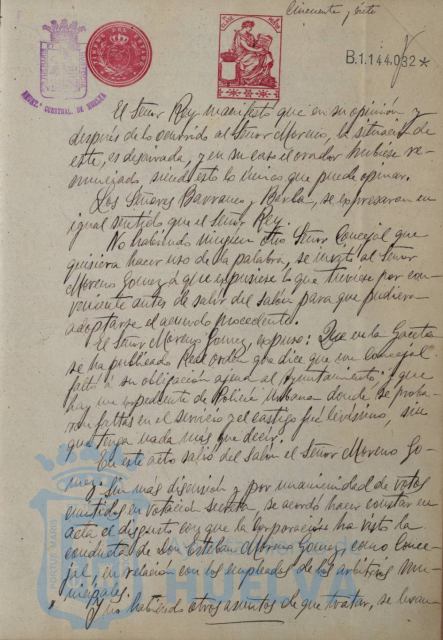 Cincuenta y siete
B.1.144.032*
El Señor Rey manifestó que en su opinión y
después de lo ocurrido al Señor Moreno, la situación de
este, es despirada, y en su caso el orador hubiese re-
nunciado, siendo esto lo único que puede opinar.
Los Señores Barranco, y Borba, se expresaron en
igual sentido que el Señor Rey.
No habiendo ningún otro Señor Concejal que
quisiera hacer uso de la palabra, se invitó al Señor
Moreno Gomez á que expusiese lo que tuviese por con-
veniente antes de salir del Salón para que pudiera
adoptarse el acuerdo procedente.
El Señor Moreno Gomez, expuso: Que en la Gaceta
se ha publicado Real orden que dice que un Concejal
faltó á su obligación al Ayuntamiento; y que
hay un expediente de Policía Urbana donde se proba-
ron faltas en el servicio y el castigo fué levísimo, sin
que tenga nada más que decir.
En este acto salió del Salón el Señor Moreno Go-
mez.
Y sin más discusión y por unanimidad de votos
emitidos en votación secreta, se acordó hacer constar en
acta el disgusto con que la Corporación ha visto la
conducta de Don Esteban Moreno Gomez, como Conce-
jal, en relación con los empleados de los arbitrios mu-
nicipales.
Y no habiendo otros asuntos de que tratar, se levan-
PORTUS MARIS
HUELVA